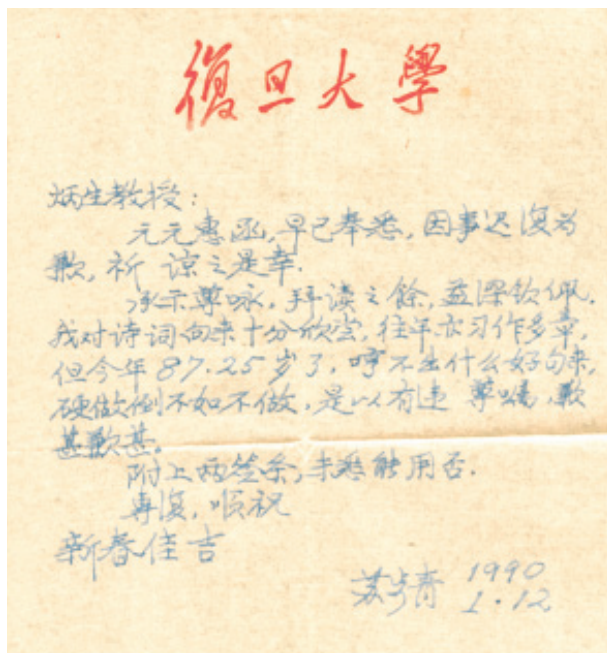 復旦大學
炳生教授:
元元惠函,早已奉悉,因事迟复为
歉,祈 谅之是幸.
承示尊咏,拜读之餘,益深钦佩.
我对诗词向来十分欣赏,往年亦习作多章,
但今年87.25岁了,哼不出什么好句来,
硬做倒不如不做,是以有违 尊嘱,歉
甚歉甚。
附上两签条,未悉能用否.
专复,顺祝
新春佳吉
苏步青 1990
1.12